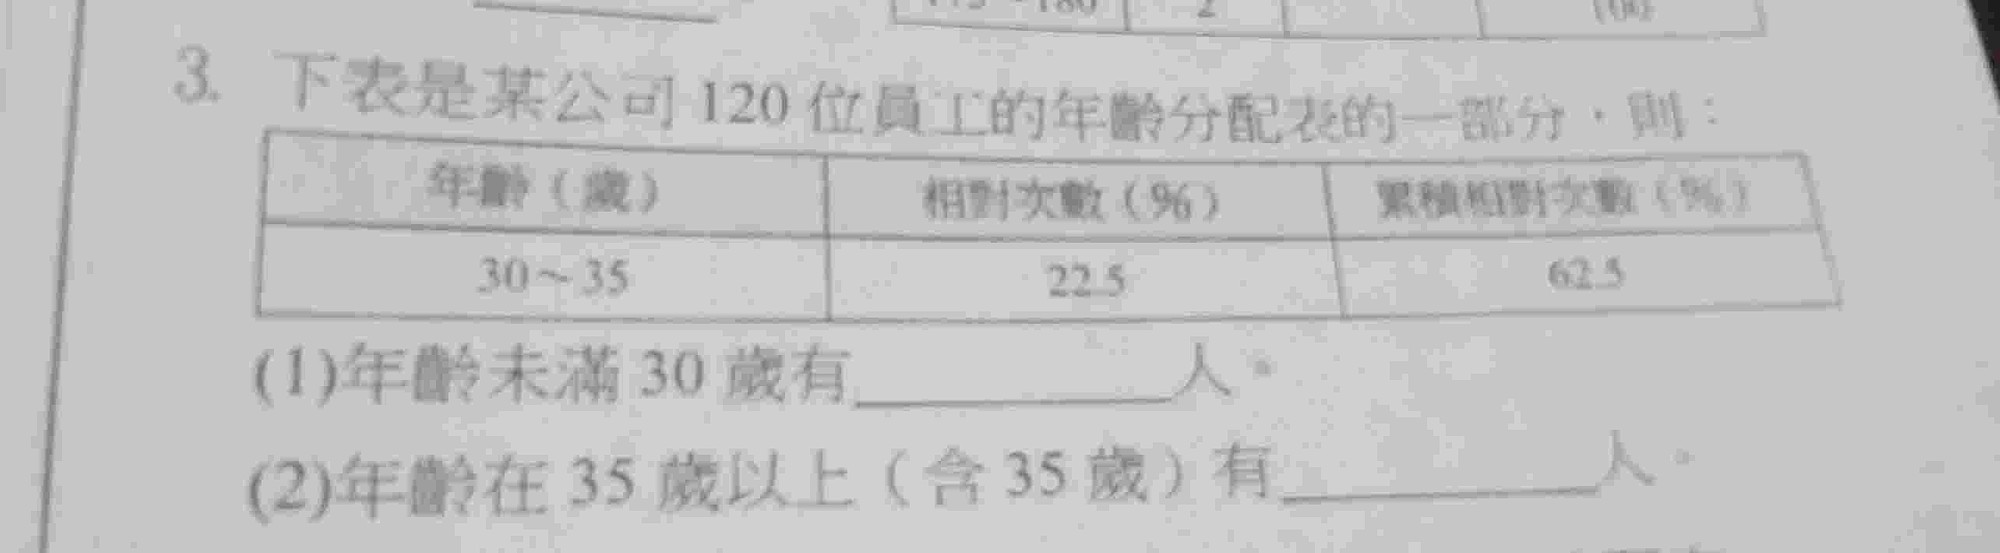 2
3. 下表是某公司 120 位員工的年齡分配表的一部分,則:
年齡(歲) 相對次數(%) 累積相對次數(%)
30~35 22.5 62.5
(1)年齡未滿 30 歲有________人。
(2)年齡在 35 歲以上(含 35 歲)有________人。